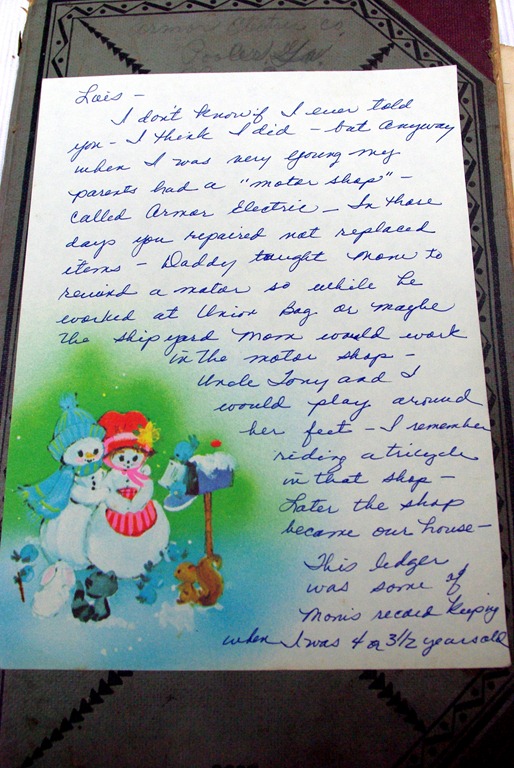 Armor Electric Co.
Pooler Ga.
Lois -
I don't know if I ever told
you - I think I did - but anyway
when I was very young my
parents had a "motor shop" -
called Armor Electric - In those
days you repaired not replaced
items - Daddy taught Mom to
rewind a motor so while he
worked at Union Bag or maybe
the ship yard Mom would work
in the motor shop -
Uncle Tony and I
would play around
her feet - I remember
riding a tricycle
in that shop -
Later the shop
became our house -
This ledger
was some of
Mom's record keeping
when I was 4 or 3 1/2 years old